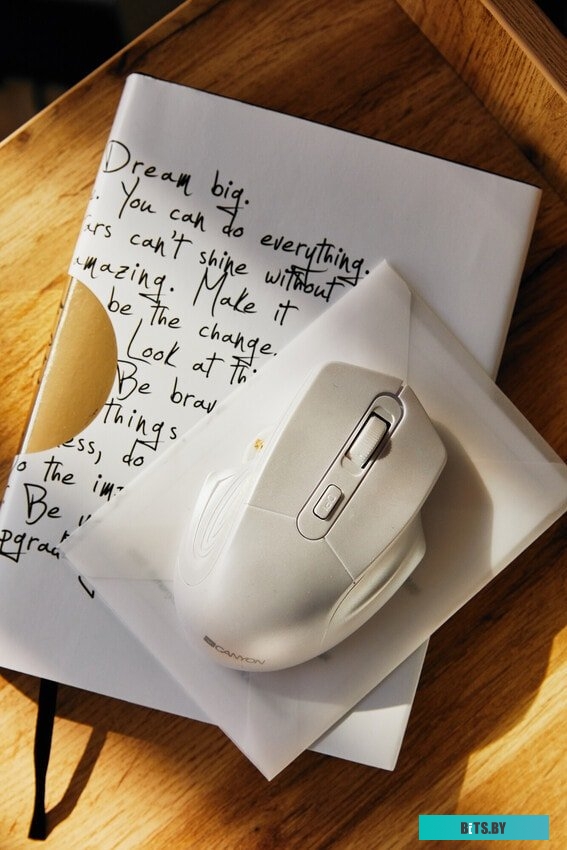 Dream big.
. You can do everything.
ars can't shine without
amazing. Make it
be the change.
Look at thi
Be brav
things
ess, do
o the im
Be
pgrad
CANYON
BiTS.BY